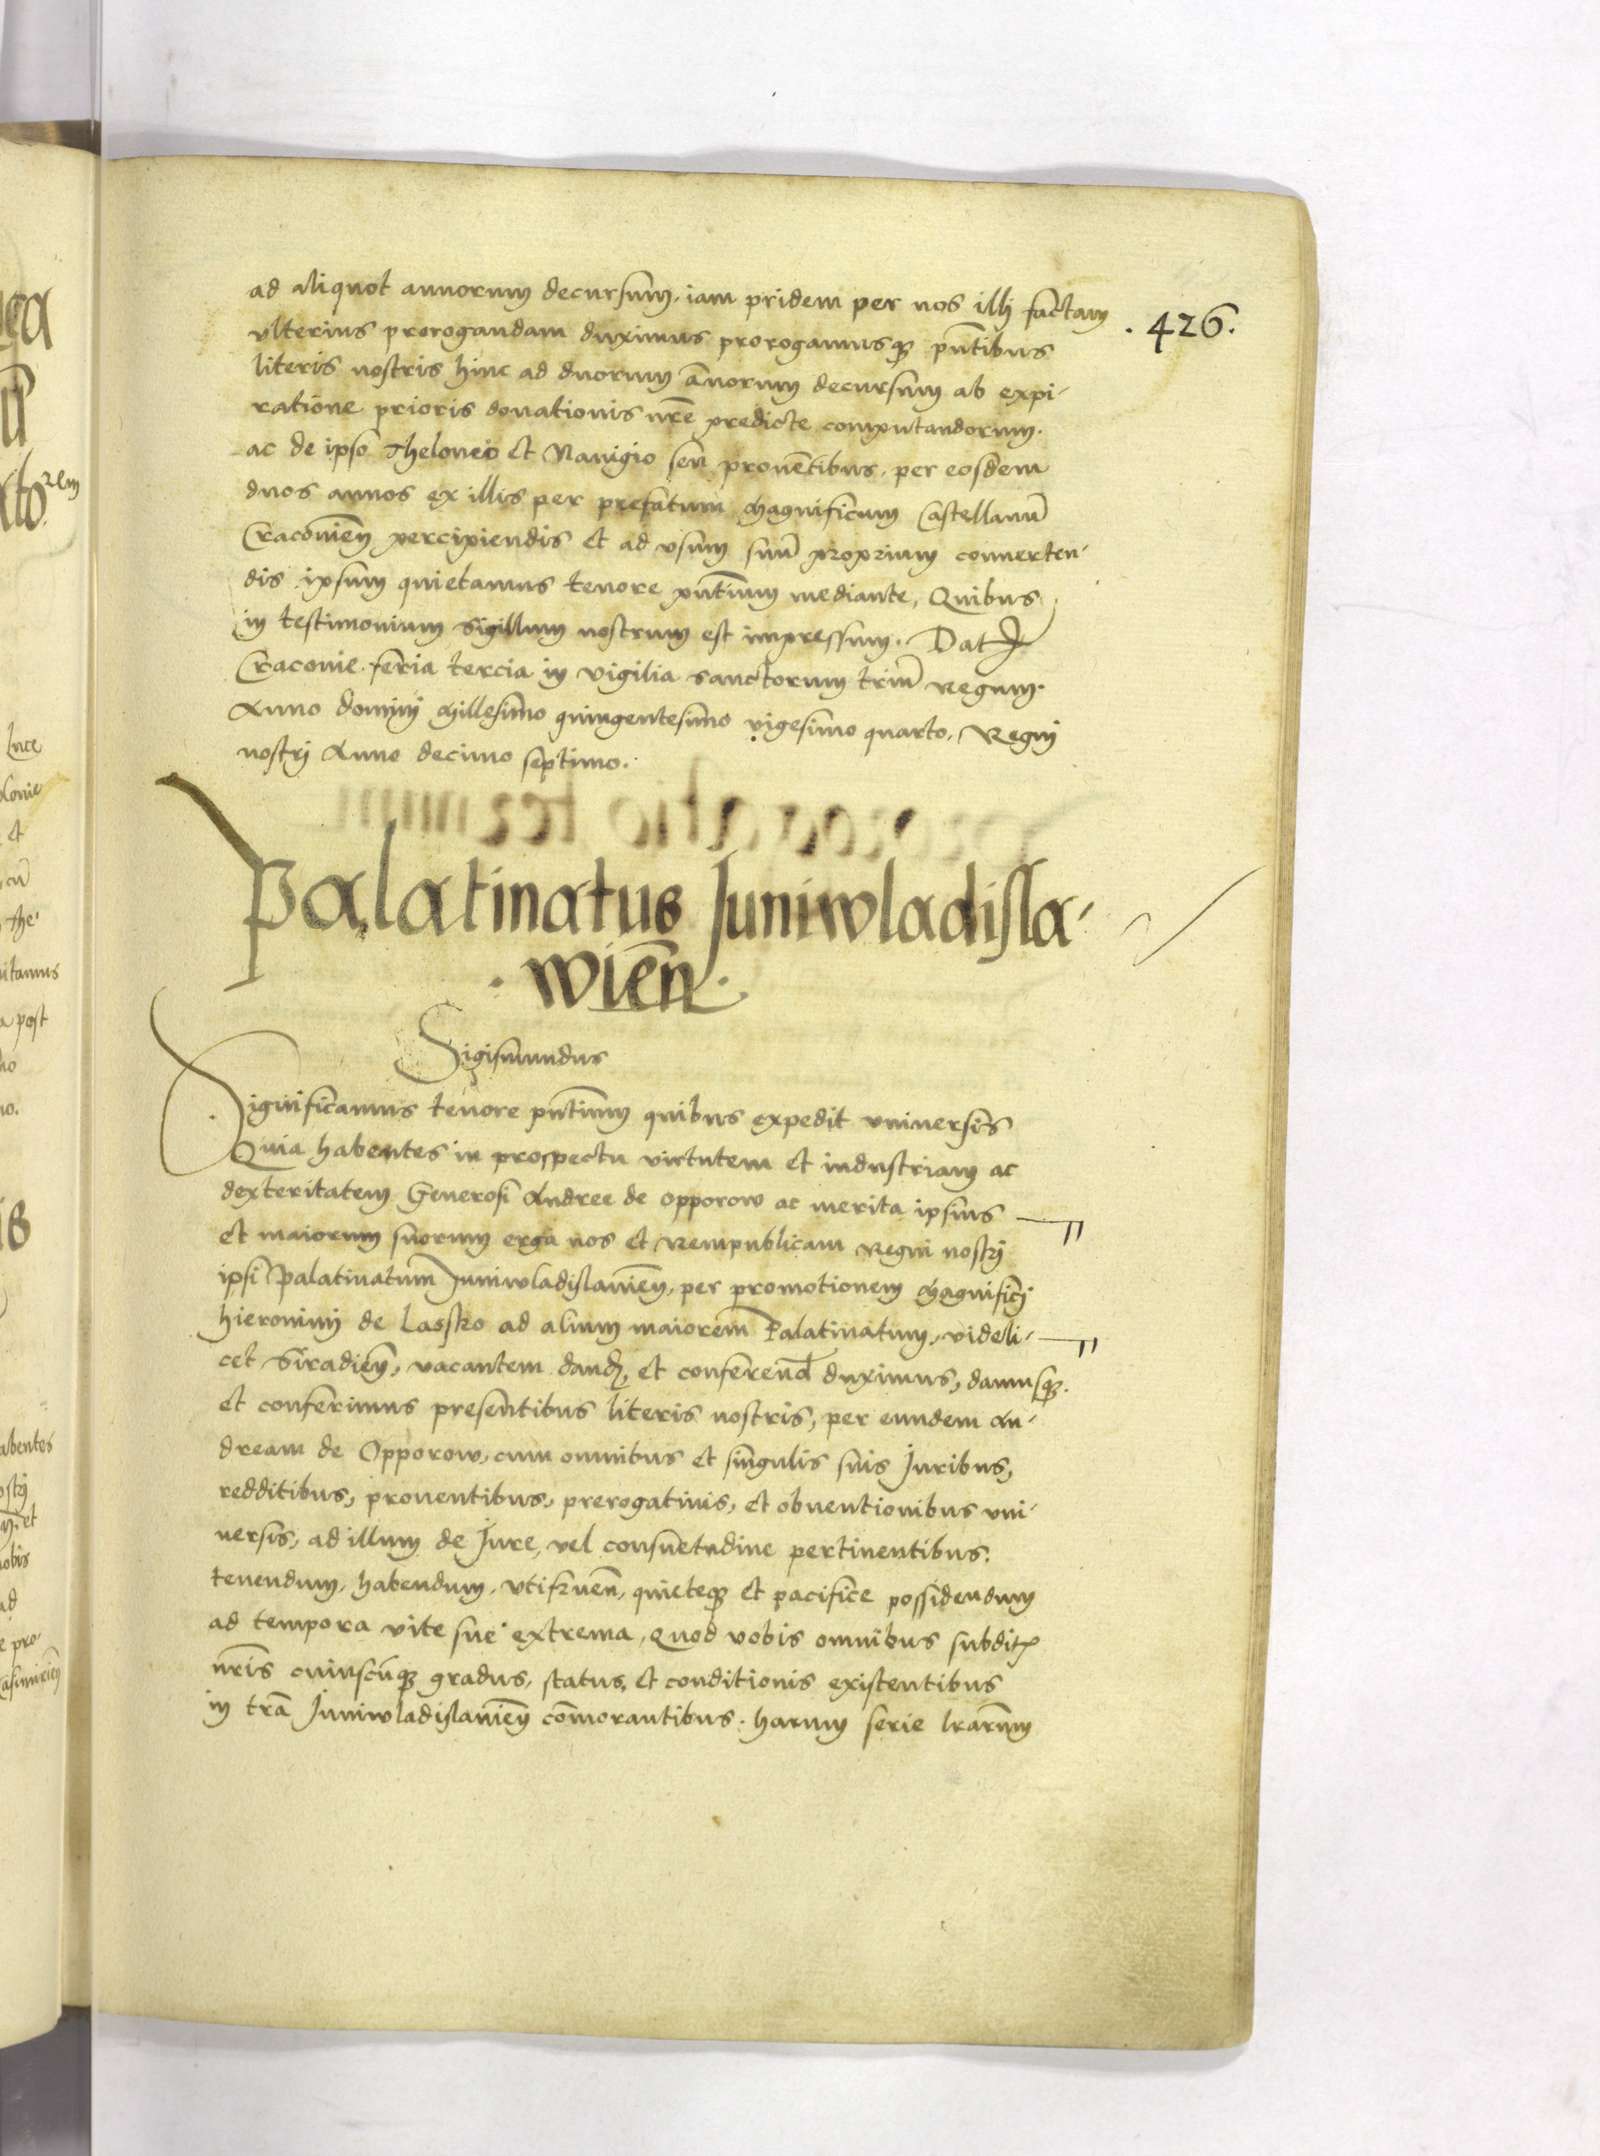 ad aliquot annorum decursum. iam pridem per nos illi factam
.426.
vlterius prorogandam duximus prorogamusqꝫ pn̄tibus
literis nostris hinc ad duorum an̄orum decursum ab expi-
ratione prioris donationis nr̄e predicte computandorum.
ac de ipso Theloneo et Nauigio seu prouētibus. per eosdem
duos annos ex illis per prefatum Magnificum Castellanū
Cracouien̄ percipiendis et ad vsum suū proprium conuerten-
dis ipsum quietamus tenore pn̄tium mediante, Quibus
in testimonium Sigillum nostrum est impressum. Dat
Cracouie. feria tercia in vigilia sanctorum triū Regum.
Anno domini Millesimo quingentesimo vigesimo quarto, Regni
nostri Anno decimo septimo.
Palatinatus Juniwladisla-
.wien̄.
Sigismundus
Significamus tenore pn̄tium quibus expedit vniuersis
Quia habentes in prospectu virtutem et industriam ac
dexteritatem Generosi Andree de Opporow ac merita ipsius
et maiorum suorum erga nos et Rempublicam Regni nostri
ipsi Palatinatum Juniwladislauien̄, per promotionem Magnifici
hieronimi de Lassko ad alium maiorem Palatinatum, videli-
cet Siradien̄, vacantem dand̄, et conferend̄ duximus, damusqꝫ.
et conferimus presentibus literis nostris, per eundem An-
dream de Opporow, cum omnibus et singulis suis Juribus,
redditibus, prouentibus, prerogatiuis, et obuentionibus vni-
uersis, ad illum de Jure, vel consuetudine pertinentibus:
tenendum, habendum, vtifruen̄, quieteqꝫ et pacifice possidendum
ad tempora vite sue extrema, Quod vobis omnibus subditꝭ
nr̄is cuiuscūqꝫ gradus, status, et conditionis existentibus
in trā Juniwladislauien̄ com̄orantibus. harum serie lrārum